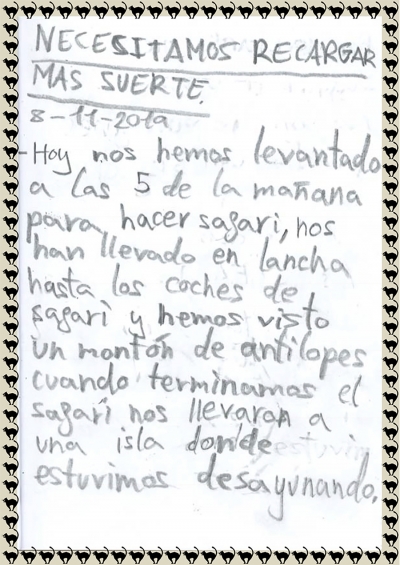 NECESITAMOS RECARGAR
MAS SUERTE.
8-11-2019
-Hoy nos hemos levantado
a las 5 de la mañana
para hacer sagari, nos
han llevado en lancha
hasta los coches de
sagari y hemos visto
un montón de antílopes
cuando terminamos el
sagari nos llevaron a
una isla donde
estuvimos desayunando.